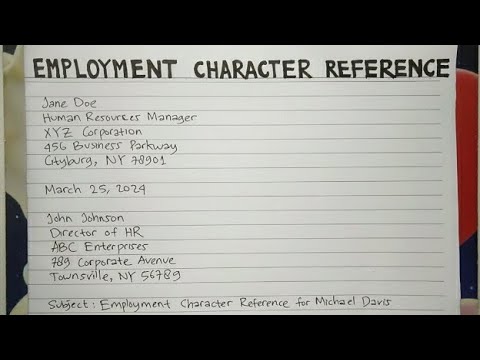 EMPLOYMENT CHARACTER REFERENCE
Jane Doe
Human Resources Manager
XYZ Corporation
456 Business Parkway
Cityburg, NY 78901
March 25, 2024
John Johnson
Director of HR
ABC Enterprises
789 Corporate Avenue
Townsville, NY 56789
Subject: Employment Character Reference for Michael Davis